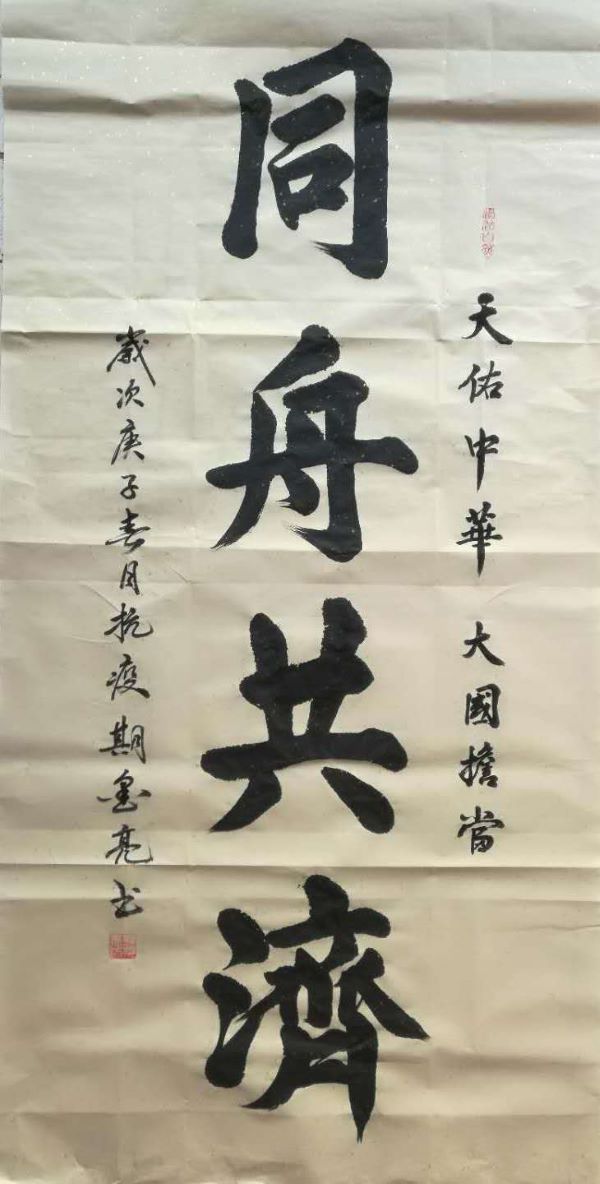 天佑中華 大國擔當
同舟共濟
歲次庚子春月抗疫期 亮书